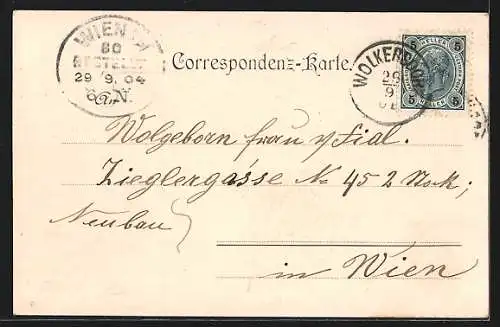 WIEN
80
BESTELLT
29 9. 04
6 N.
Correspondenz-Karte.
WOLKERSDORF
29
9
5 HELLER 5
5 HELLER 5
Wolgeborn frau v. Fial.
Zieglergasse No 45 2 Stock,
Neubau
in Wien